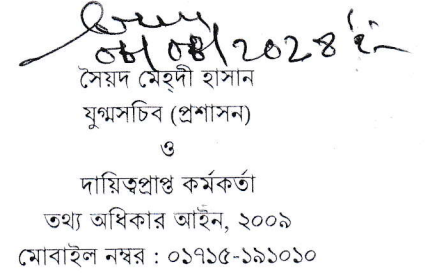 ০৮/০৪/২০২৪ ইং
সৈয়দ মেহ্দী হাসান
যুগ্মসচিব (প্রশাসন)
ও
দায়িত্বপ্রাপ্ত কর্মকর্তা
তথ্য অধিকার আইন, ২০০৯
মোবাইল নম্বর : ০১৭১৫-১৯১০১০